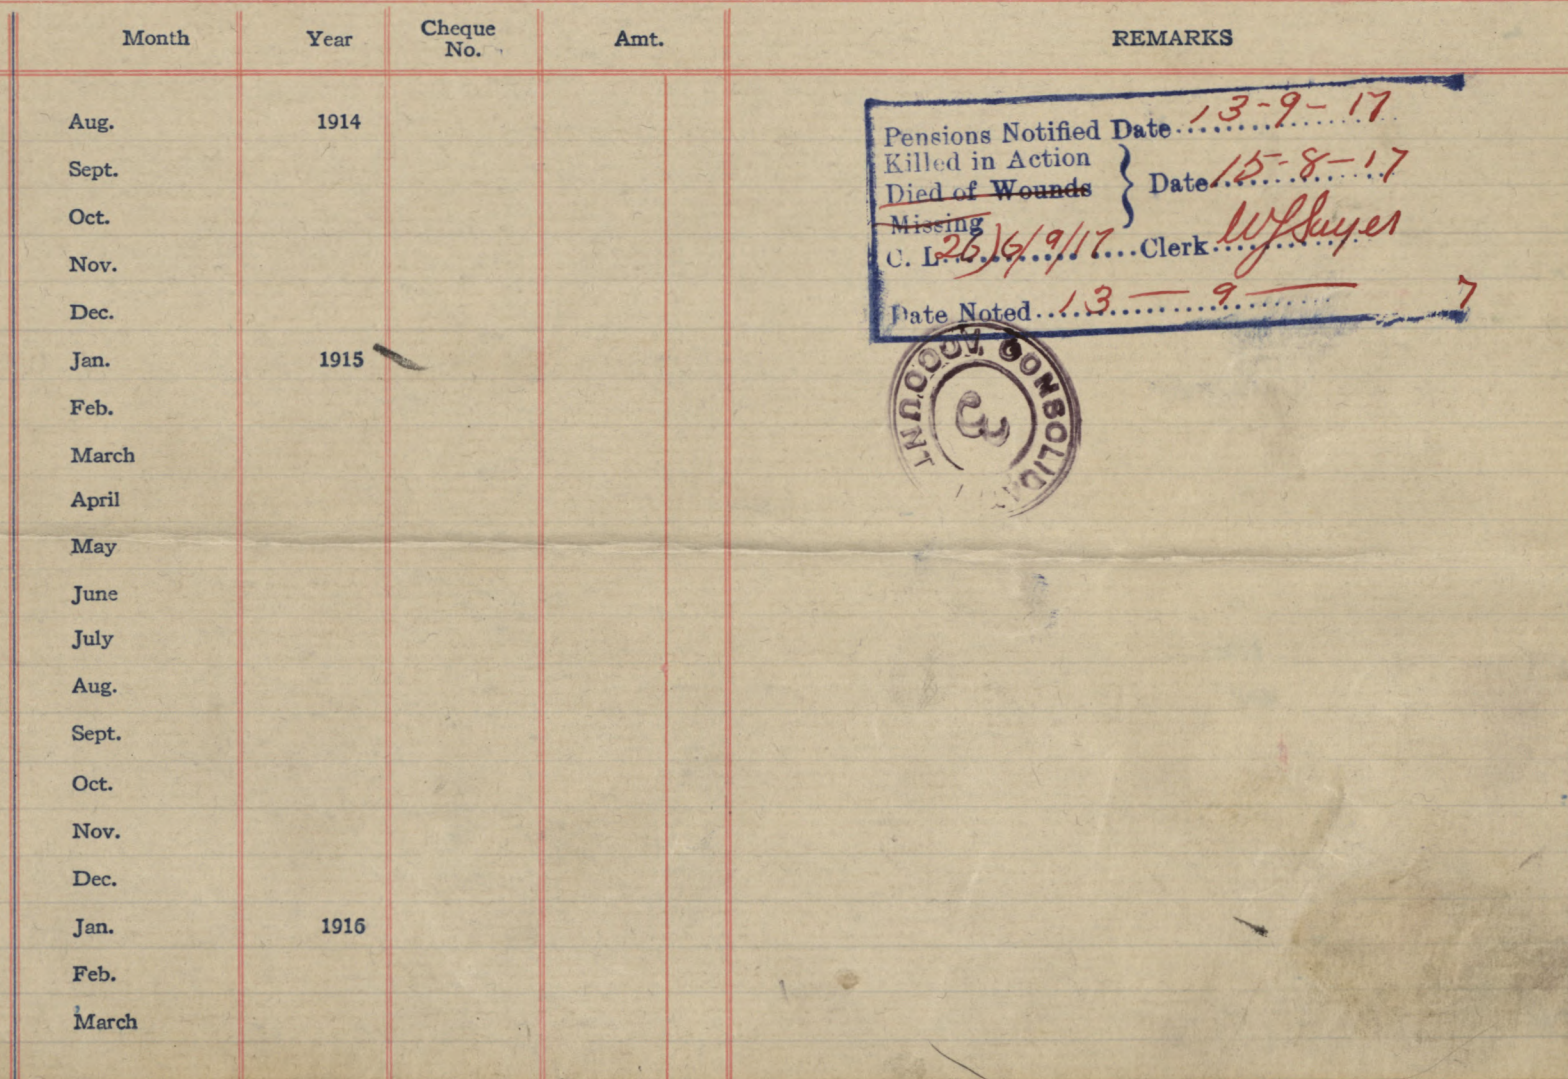 Month Year Cheque No. Amt. REMARKS
Aug. 1914
Sept.
Oct.
Nov.
Dec.
Jan. 1915
Feb.
March
April
May
June
July
Aug.
Sept.
Oct.
Nov.
Dec.
Jan. 1916
Feb.
March
Pensions Notified Date 13-9-17
Killed in Action
Died of Wounds } Date 15-8-17
Missing
C. L. 26)6/9/17 Clerk W J Sayer
Date Noted 13 — 9 — 7
CONSOLIDA
ACCOUNT